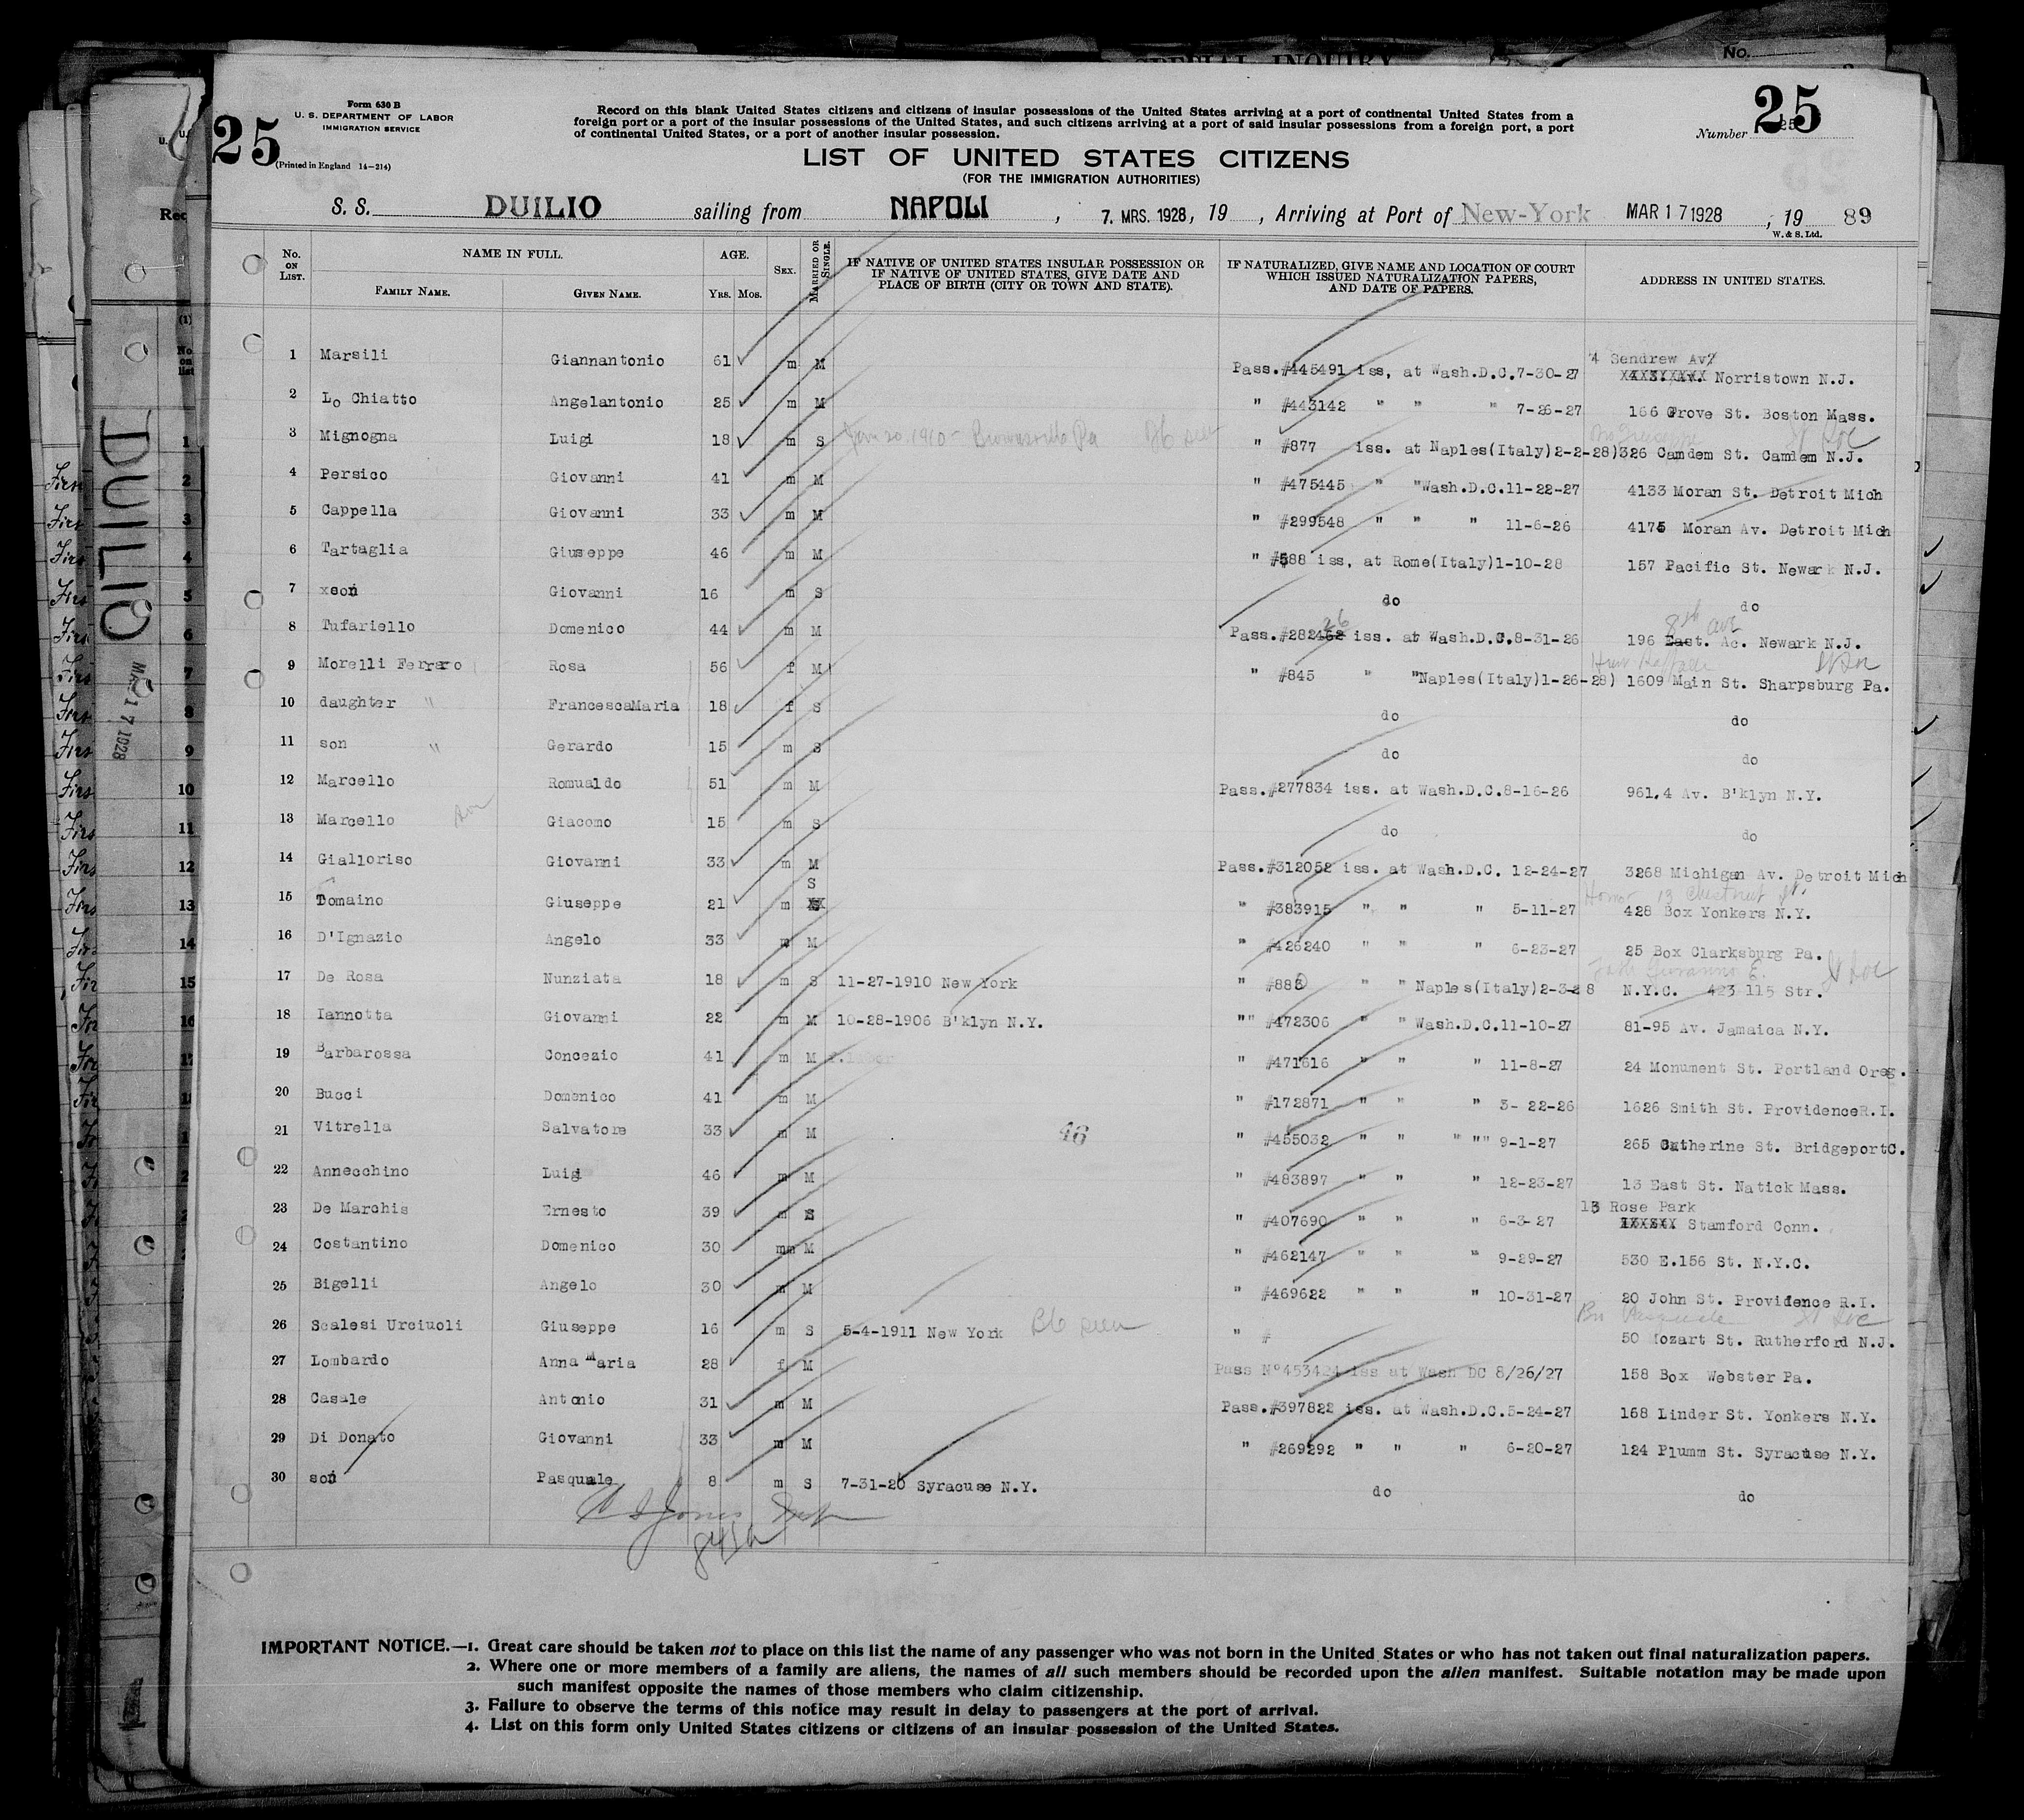 SPECIAL INQUIRY
No.
Form 630 B
U. S. DEPARTMENT OF LABOR
IMMIGRATION SERVICE
25
(Printed in England 14—214)
Record on this blank United States citizens and citizens of insular possessions of the United States arriving at a port of continental United States from a
foreign port or a port of the insular possessions of the United States, and such citizens arriving at a port of said insular possessions from a foreign port, a port
of continental United States, or a port of another insular possession.
Number 25
LIST OF UNITED STATES CITIZENS
(FOR THE IMMIGRATION AUTHORITIES)
S. S. DUILIO sailing from NAPOLI, 7. MRS. 1928, 19, Arriving at Port of New-York MAR 17 1928, 19 89
W. & S. Ltd.
No. ON LIST. NAME IN FULL. FAMILY NAME. GIVEN NAME. AGE. YRS. MOS. SEX. MARRIED OR SINGLE. IF NATIVE OF UNITED STATES INSULAR POSSESSION OR IF NATIVE OF UNITED STATES, GIVE DATE AND PLACE OF BIRTH (CITY OR TOWN AND STATE). IF NATURALIZED, GIVE NAME AND LOCATION OF COURT WHICH ISSUED NATURALIZATION PAPERS, AND DATE OF PAPERS. ADDRESS IN UNITED STATES.
4 Sendrew Av
1 Marsili Giannantonio 61 m M Pass.#445491 iss, at Wash.D.C.7-30-27 Norristown N.J.
2 Lo Chiatto Angelantonio 25 m M " #443142 " " " 7-26-27 166 Grove St. Boston Mass.
3 Mignogna Luigi 18 m S Jan 20. 1910 - Brownsville Pa Bb seen " #877 iss. at Naples(Italy)2-2-28) 326 Camdem St. Camdem N.J.
4 Persico Giovanni 41 m M " #475445 " "Wash.D.C.11-22-27 4133 Moran St. Detroit Mich
5 Cappella Giovanni 33 m M " #299548 " " " 11-6-26 4175 Moran Av. Detroit Mich
6 Tartaglia Giuseppe 46 m M " #588 iss, at Rome(Italy)1-10-28 157 Pacific St. Newark N.J.
7 xson Giovanni 16 m S do do
8th Ave
8 Tufariello Domenico 44 m M Pass.#282462 iss. at Wash.D.C.8-31-26 196 East. Ac. Newark N.J.
9 Morelli Ferraro Rosa 56 f M " #845 " "Naples(Italy)1-26-28) 1609 Main St. Sharpsburg Pa.
10 daughter " FrancescaMaria 18 f S do do
11 son " Gerardo 15 m S do do
12 Marcello Romualdo 51 m M Pass.#277834 iss. at Wash.D.C.8-16-26 961,4 Av. B'klyn N.Y.
13 Marcello son Giacomo 15 m S do do
14 Gialloriso Giovanni 33 m M Pass.#312052 iss. at Wash.D.C. 12-24-27 3268 Michigan Av. Detroit Mich
13 Chestnut St.
15 Tomaino Giuseppe 21 m S " #383915 " " " 5-11-27 428 Box Yonkers N.Y.
16 D'Ignazio Angelo 33 m M " #426240 " " " 6-23-27 25 Box Clarksburg Pa.
17 De Rosa Nunziata 18 m S 11-27-1910 New York " " " Naples(Italy)2-3-28 N.Y.C. 423 115 Str.
18 Iannotta Giovanni 22 m M 10-28-1906 B'klyn N.Y. "" #472306 " " Wash.D.C.11-10-27 81-95 Av. Jamaica N.Y.
19 Barbarossa Concezio 41 m M " #471616 " " " 11-8-27 24 Monument St. Portland Oreg.
20 Bucci Domenico 41 m M " #172871 " " " 3- 22-26 1626 Smith St. ProvidenceR.I.
21 Vitrella Salvatore 33 m M 46 " #455032 " " " "" 9-1-27 265 Catherine St. BridgeportC.
22 Annecchino Luigi 46 m M " #483897 " " " 12-23-27 13 East St. Natick Mass.
13 Rose Park
23 De Marchis Ernesto 39 m S " #407690 " " " 6-3-27 Stamford Conn.
24 Costantino Domenico 30 mm M " #462147 " " " 9-29-27 530 E.156 St. N.Y.C.
25 Bigelli Angelo 30 m M " #469622 " " " 10-31-27 20 John St. Providence R.I.
26 Scalesi Urciuoli Giuseppe 16 m S 5-4-1911 New York Bb seen " # 50 Mozart St. Rutherford N.J.
27 Lombardo Anna Maria 28 f M Pass N°453424 iss at Wash DC 8/26/27 158 Box Webster Pa.
28 Casale Antonio 31 m M Pass.#397822 iss. at Wash.D.C.5-24-27 168 Linder St. Yonkers N.Y.
29 Di Donato Giovanni 33 m M " #269292 " " " 6-20-27 124 Plumm St. Syracuse N.Y.
30 son Pasquale 8 m S 7-31-20 Syracuse N.Y. do do
IMPORTANT NOTICE.—1. Great care should be taken not to place on this list the name of any passenger who was not born in the United States or who has not taken out final naturalization papers.
2. Where one or more members of a family are aliens, the names of all such members should be recorded upon the alien manifest. Suitable notation may be made upon
such manifest opposite the names of those members who claim citizenship.
3. Failure to observe the terms of this notice may result in delay to passengers at the port of arrival.
4. List on this form only United States citizens or citizens of an insular possession of the United States.
DUILIO
MAR 17 1928